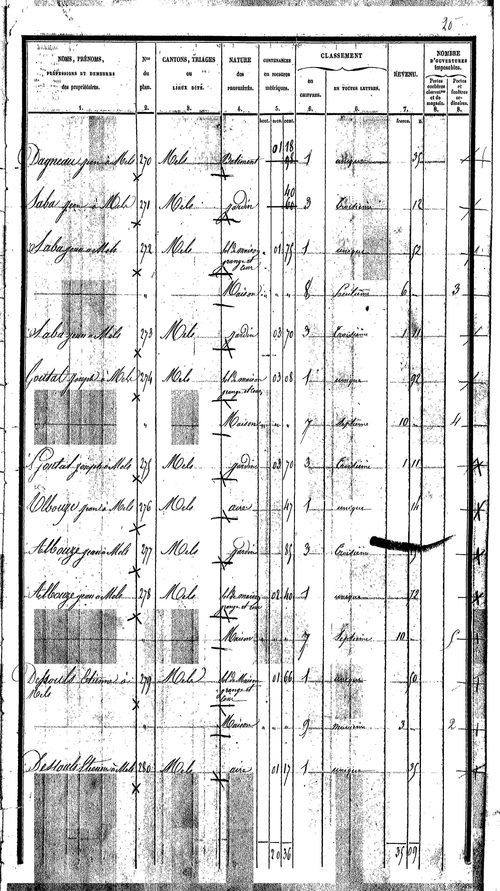 20
NOMS, PRÉNOMS, PROFESSIONS ET DEMEURES des propriétaires. 1.
Nos du plan. 2.
CANTONS, TRIAGES OU LIEUX DITS. 3.
NATURE des PROPRIÉTÉS. 4.
CONTENANCES en MESURES métriques. 5.
CLASSEMENT
en CHIFFRES. 6.
EN TOUTES LETTRES. 6.
REVENU. 7.
NOMBRE D'OUVERTURES imposables.
Portes cochères et de magasin. 8.
Portes et fenêtres ordinaires. 8.
hect. ares. cent. francs. c.
01 18
Dagneau jean à Mels 270 Mels Batiment 1 unique 35
40
Saba jean à Mels 271 Mels jardin 60 3 Troisième 12
Saba jean à Mels 272 Mels maison grange et cour 01 75 1 unique 52
" Maison " " " 8 huitième 6 3
Saba jean à Mels 273 Mels jardin 03 70 3 Troisième 1 11
Goutal joseph à Mels 274 Mels maison grange et cour 03 08 1 unique 92
Maison " " " 7 septième 10 4
Goutal joseph à Mels 275 Mels jardin 03 70 3 Troisième 1 11
Albouze jean à Mels 276 Mels aire 47 1 unique 14
Albouze jean à Mels 277 Mels jardin 35 3 Troisième
Albouze jean à Mels 278 Mels maison grange et cour 02 40 1 unique 72
Maison " " " 7 septième 10 5
Etienne à Mels 279 Mels Maison grange et cour 01 66 1 unique 50
" Maison 9 3 2
Etienne à Mels 280 Mels aire 01 17 1 unique 35
20 36 35 09